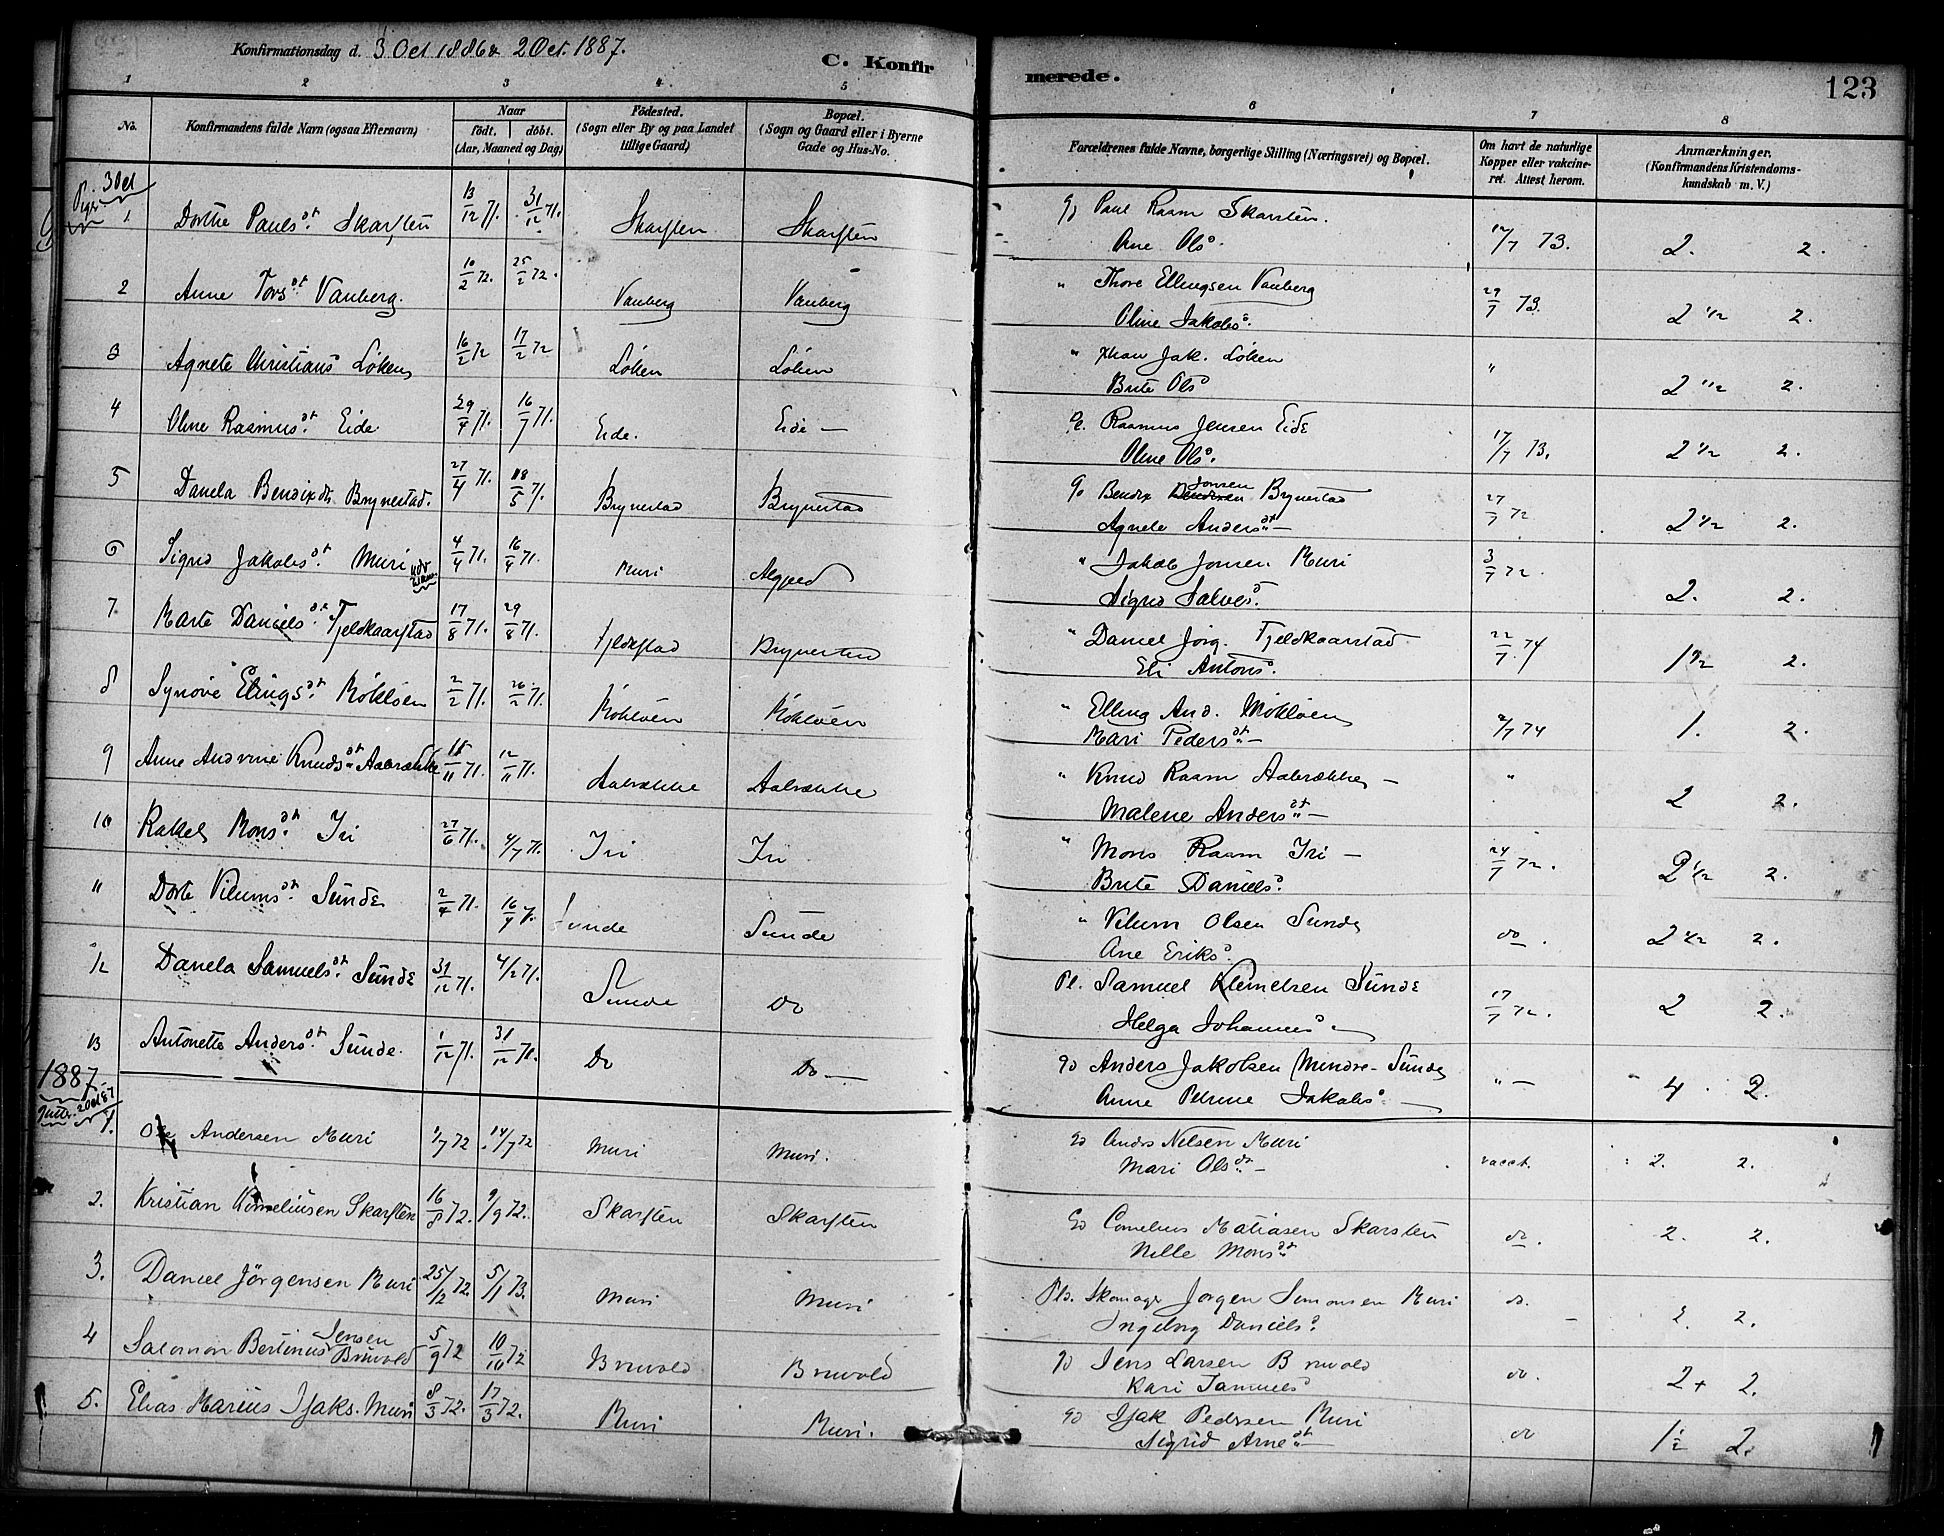 Konfirmationsdag d. 3 Oct 1886 & 2 Oct. 1887.
C. Konfirmerede.
123
1 2 3 4 5 6 7 8
No.
Konfirmandens fulde Navn (ogsaa Efternavn)
Naar
födt. döbt.
(Aar, Maaned og Dag)
Födested.
(Sogn eller By og paa Landet tillige Gaard)
Bopæl.
(Sogn og Gaard eller i Byerne Gade og Hus-No.
Forældrenes fulde Navne, borgerlige Stilling (Næringsvei) og Bopæl.
Om havt de naturlige Kopper eller vakcineret. Attest herom.
Anmærkninger.
(Konfirmandens Kristendomskundskab m. V.)
3 Oct
Piger
1 Dorthe Pauls dt. Skarsten 13/12 71. 31/12 71. Skarsten Skarsten Gd Paul Rasm Skarsten. 12/7 73. 2. 2.
Ane Ols d.
2 Anne Tors dt. Vanberg. 10/2 72. 25/2 72. Vanberg Vanberg " Thore Ellingsen Vanberg 29/7 73. 2 1/2 2.
Oline Jakobs d.
3 Agnete Christians Löken 16/2 72 17/2 72 Löken Löken " Jak. Löken " 2 1/2 2.
Brite Ols d
4 Oline Rasmus dt. Eide 29/4 71. 16/7 71. Eide. Eide — Rasmus Jensen Eide 17/7 73. 2 1/2 2.
Oline Ols d.
5 Danela Bendix dt. Brynestad. 27/4 71. 18/5 71. Brynestad Brynestad Gd Bendix Jonsen Brynestad 27/7 72 2 1/2 2.
Agnete Anders dt —
6 Signo Jakobs dt. Muri 4/4 71. 16/4 71. Muri " Jakob Jonsen Muri 3/7 72. 2. 2.
Signo Salves d.
7 Marte Daniels dt. Fjeldkaarstad 17/8 71. 29/8 71. Fjeldkstad Brynestad " Daniel Jörg. Fjeldkaarstad 22/7 74 1 1/2 2.
Eli Antons d.
8 Synöve Elings dt. Möklöen 2/2 71. 26/2 71. Möklöen Möklöen " Elling And. Möklöen 2/7 74 1. 2.
Mari Peders dt —
9 Anne Andrine Knuds dt Aabrække 15/11 71. 12/11 71. Aabrække Aabrække " Knud Rasm Aabrække — " 2 2.
Malene Anders dt —
10 Rakel Mons dt. Iri 27/6 71. 4/7 71. Iri Iri " Mons Rasm Iri — 24/7 72. 2 1/2 2.
Brite Daniels d.
11 Dorte Vilums dt. Sunde 2/4 71. 16/4 71. Sunde Sunde " Vilum Olsen Sunde do. 2 1/2 2.
Ane Eriks d.
12 Danela Samuels dt. Sunde 31/12 71. 4/2 71. Sunde Do Pl. Samuel Klemetsen Sunde 17/7 72. 2 2.
Helga Johannes d
13 Antonette Anders dt. Sunde. 1/12 71. 31/12 71. Do Do — Gd Anders Jakobsen (Mindre-Sunde " — 4. 2.
Anne Petrine Jakobs d —
1887
Gutter 2 Oct 87
1. Ole Andersen Muri 1/7 72 14/7 72 Muri Muri. Gd Anders Nelsen Muri vacct. 2. 2.
Mari Ols dt —
2. Kristian Korneliusen Skarsten 16/8 72. 9/9 72. Skarsten Skarsten Gd Cornelius Matiasen Skarsten do. 2. 2.
Nille Mons dt
3. Daniel Jörgensen Muri 25/12 72. 5/1 73. Muri Muri Pls. Skomager Jörgen Simonsen Muri do. 2 2.
Ingeborg Daniels d
4 Salomon Bertinus Jensen Bruvold 5/9 72 10/10 72 Bruvold Bruvold Gd Jens Larsen Bruvold do. 2+ 2.
Kari Samuels d
5. Elias Marius Isaks. Muri 8/3 72. 17/3 72. Muri Muri. Gd Isak Pedersen Muri do 1 1/2 2.
Sigrid Arne dt —